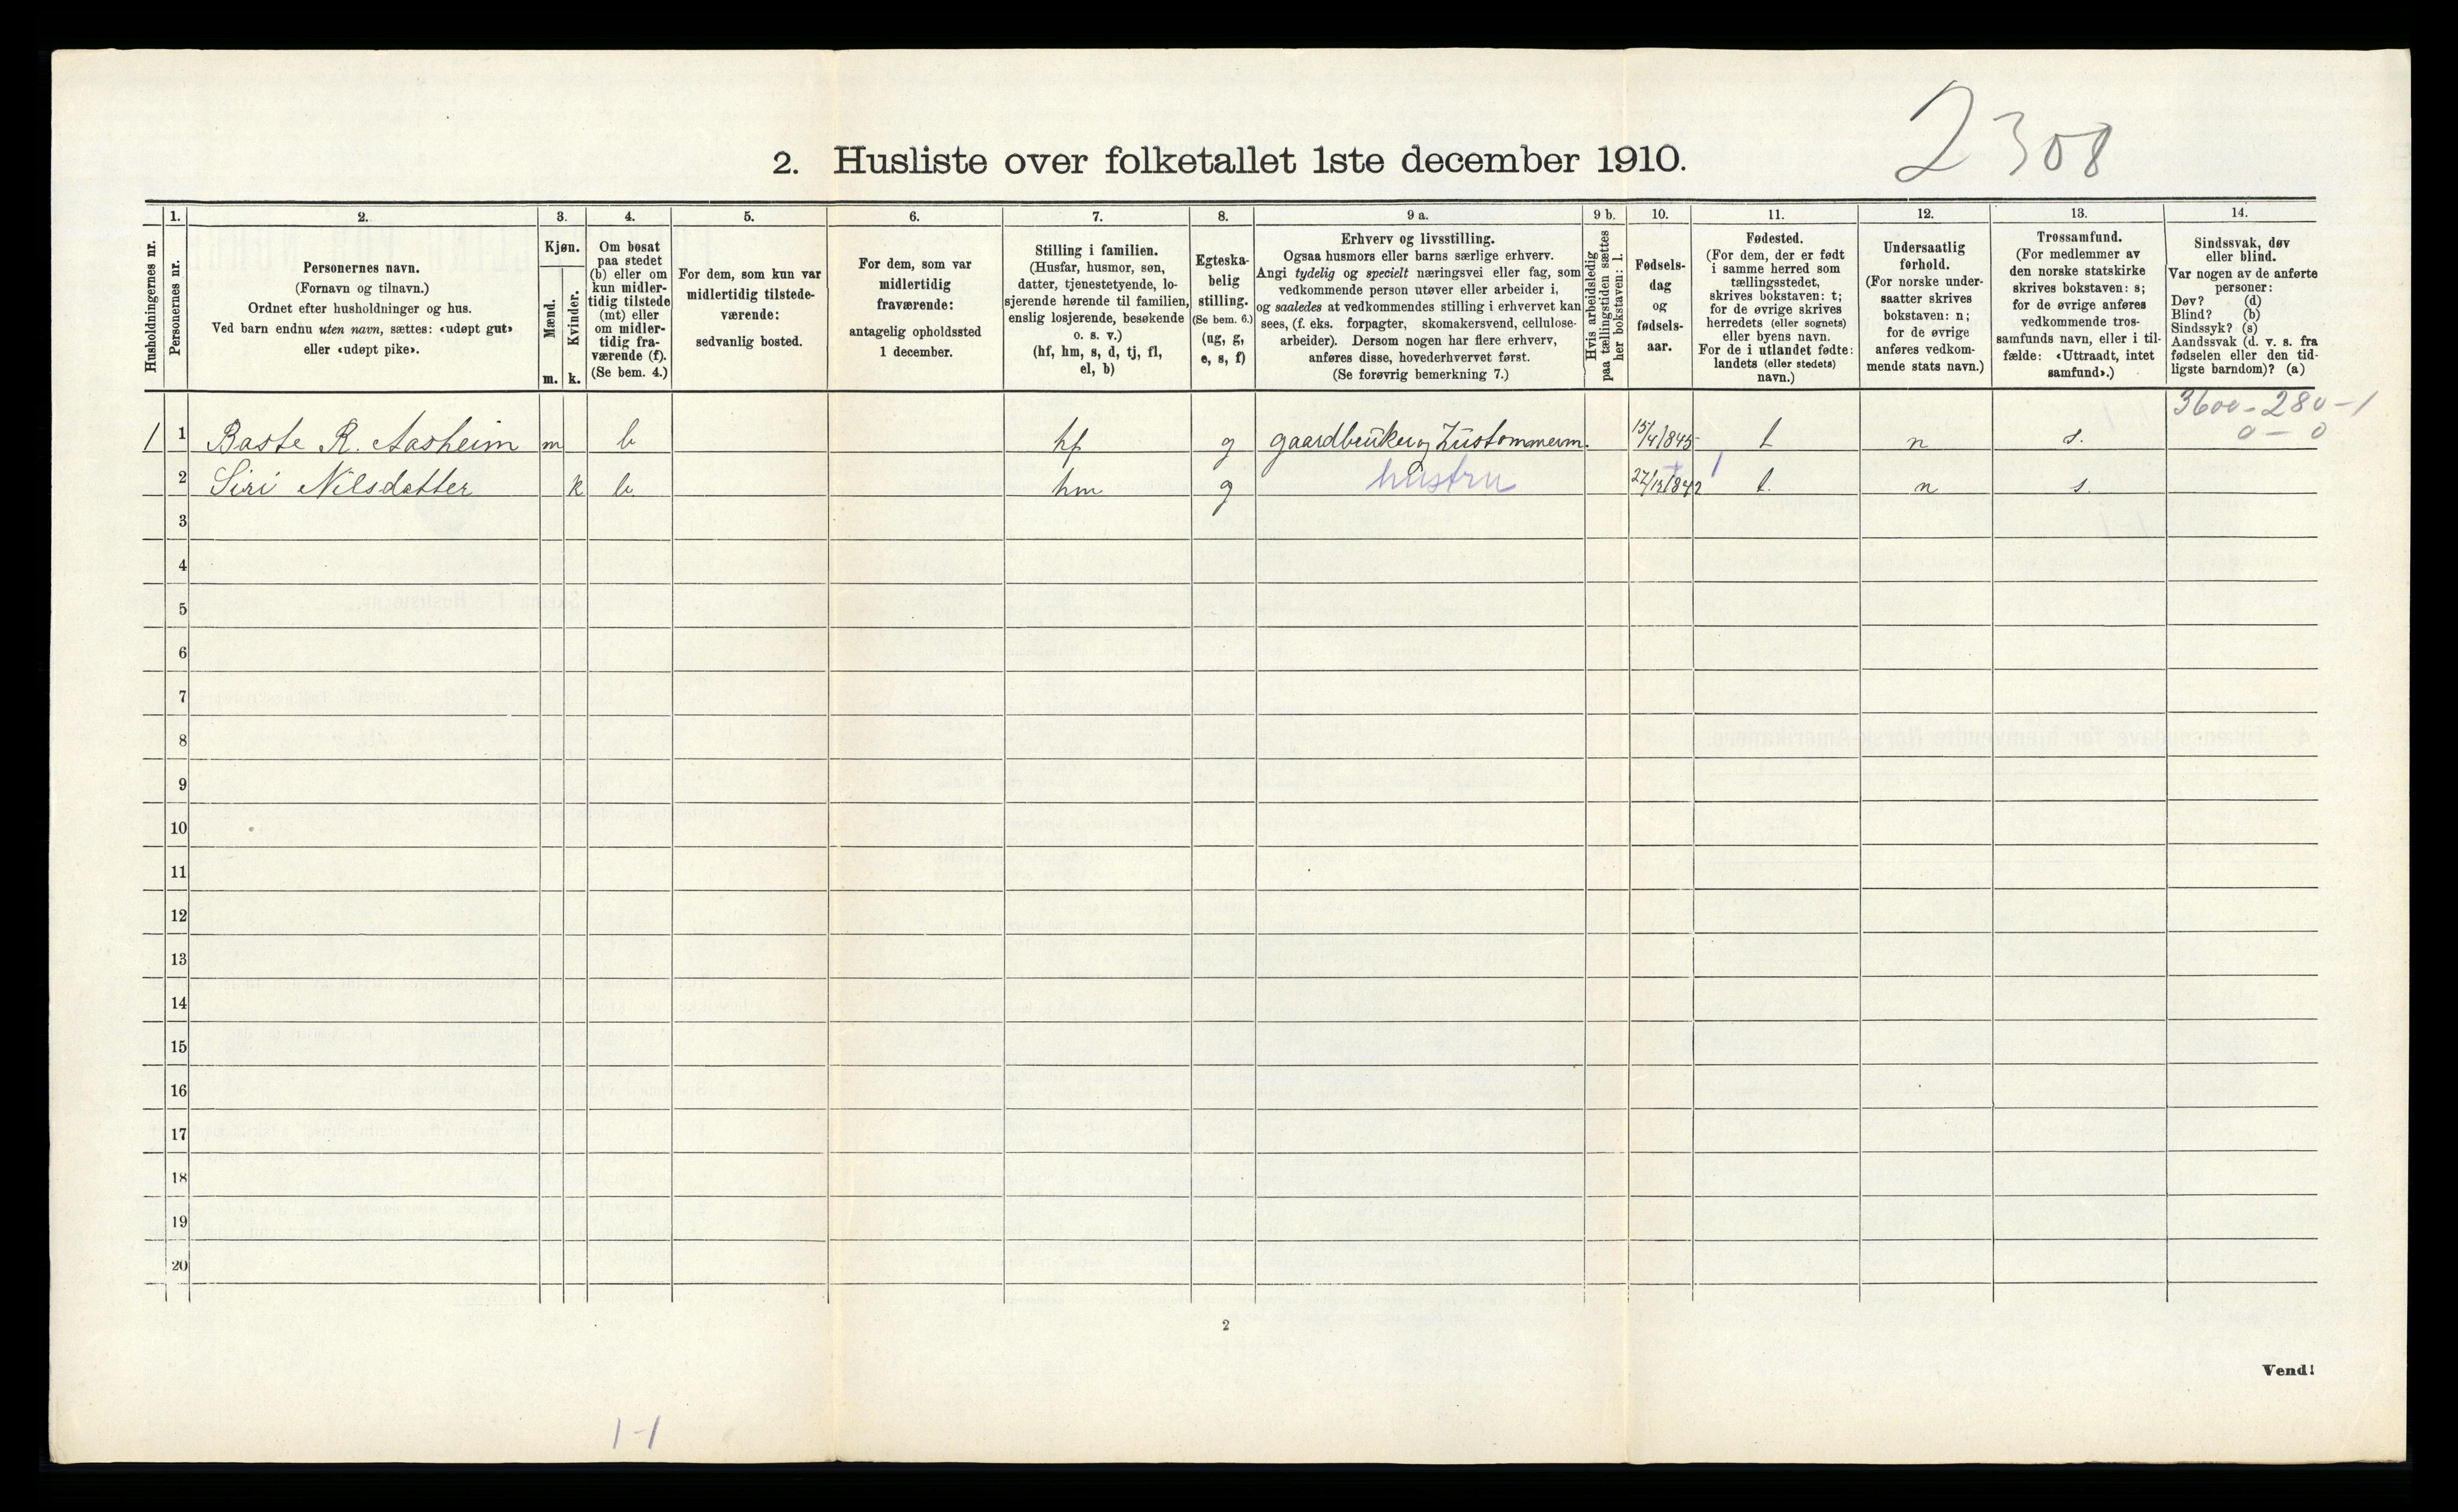 2308
2. Husliste over folketallet 1ste december 1910.
1. 2. 3. 4. 5. 6. 7. 8. 9 a. 9 b. 10. 11. 12. 13. 14.
Husholdningernes nr.
Personernes nr.
Personernes navn.
(Fornavn og tilnavn.)
Ordnet efter husholdninger og hus.
Ved barn endnu uten navn, sættes: «udøpt gut»
eller «udøpt pike».
Kjøn.
Mænd.
Kvinder.
m. k.
Om bosat
paa stedet
(b) eller om
kun midler-
tidig tilstede
(mt) eller
om midler-
tidig fra-
værende (f).
(Se bem. 4.)
For dem, som kun var
midlertidig tilstede-
værende:
sedvanlig bosted.
For dem, som var
midlertidig
fraværende:
antagelig opholdssted
1 december.
Stilling i familien.
(Husfar, husmor, søn,
datter, tjenestetyende, lo-
sjerende hørende til familien,
enslig losjerende, besøkende
o. s. v.)
(hf, hm, s, d, tj, fl,
el, b)
Egteska-
belig
stilling.
(Se bem. 6.)
(ug, g,
e, s, f)
Erhverv og livsstilling.
Ogsaa husmors eller barns særlige erhverv.
Angi tydelig og specielt næringsvei eller fag, som
vedkommende person utøver eller arbeider i,
og saaledes at vedkommendes stilling i erhvervet kan
sees, (f. eks. forpagter, skomakersvend, cellulose-
arbeider). Dersom nogen har flere erhverv,
anføres disse, hovederhvervet først.
(Se forøvrig bemerkning 7.)
Hvis arbeidsledig
paa tællingstiden sættes
her bokstaven: l.
Fødsels-
dag
og
fødsels-
aar.
Fødested.
(For dem, der er født
i samme herred som
tællingsstedet,
skrives bokstaven: t;
for de øvrige skrives
herredets (eller sognets)
eller byens navn.
For de i utlandet fødte:
landets (eller stedets)
navn.)
Undersaatlig
forhold.
(For norske under-
saatter skrives
bokstaven: n;
for de øvrige
anføres vedkom-
mende stats navn.)
Trossamfund.
(For medlemmer av
den norske statskirke
skrives bokstaven: s;
for de øvrige anføres
vedkommende tros-
samfunds navn, eller i til-
fælde: «Uttraadt, intet
samfund».)
Sindssvak, døv
eller blind.
Var nogen av de anførte
personer:
Døv? (d)
Blind? (b)
Sindssyk? (s)
Aandssvak (d. v. s. fra
fødselen eller den tid-
ligste barndom)? (a)
3600 - 280 - 1
0 - 0
1 1 Baste R. Aasheim m b hf g gaardbruker og 15/4 1845 t n s.
2 Siri Nilsdatter k b hm g hustru 1842 t. n s.
3
4
5
6
7
8
9
10
11
12
13
14
15
16
17
18
19
20
2
Vend!
1-1